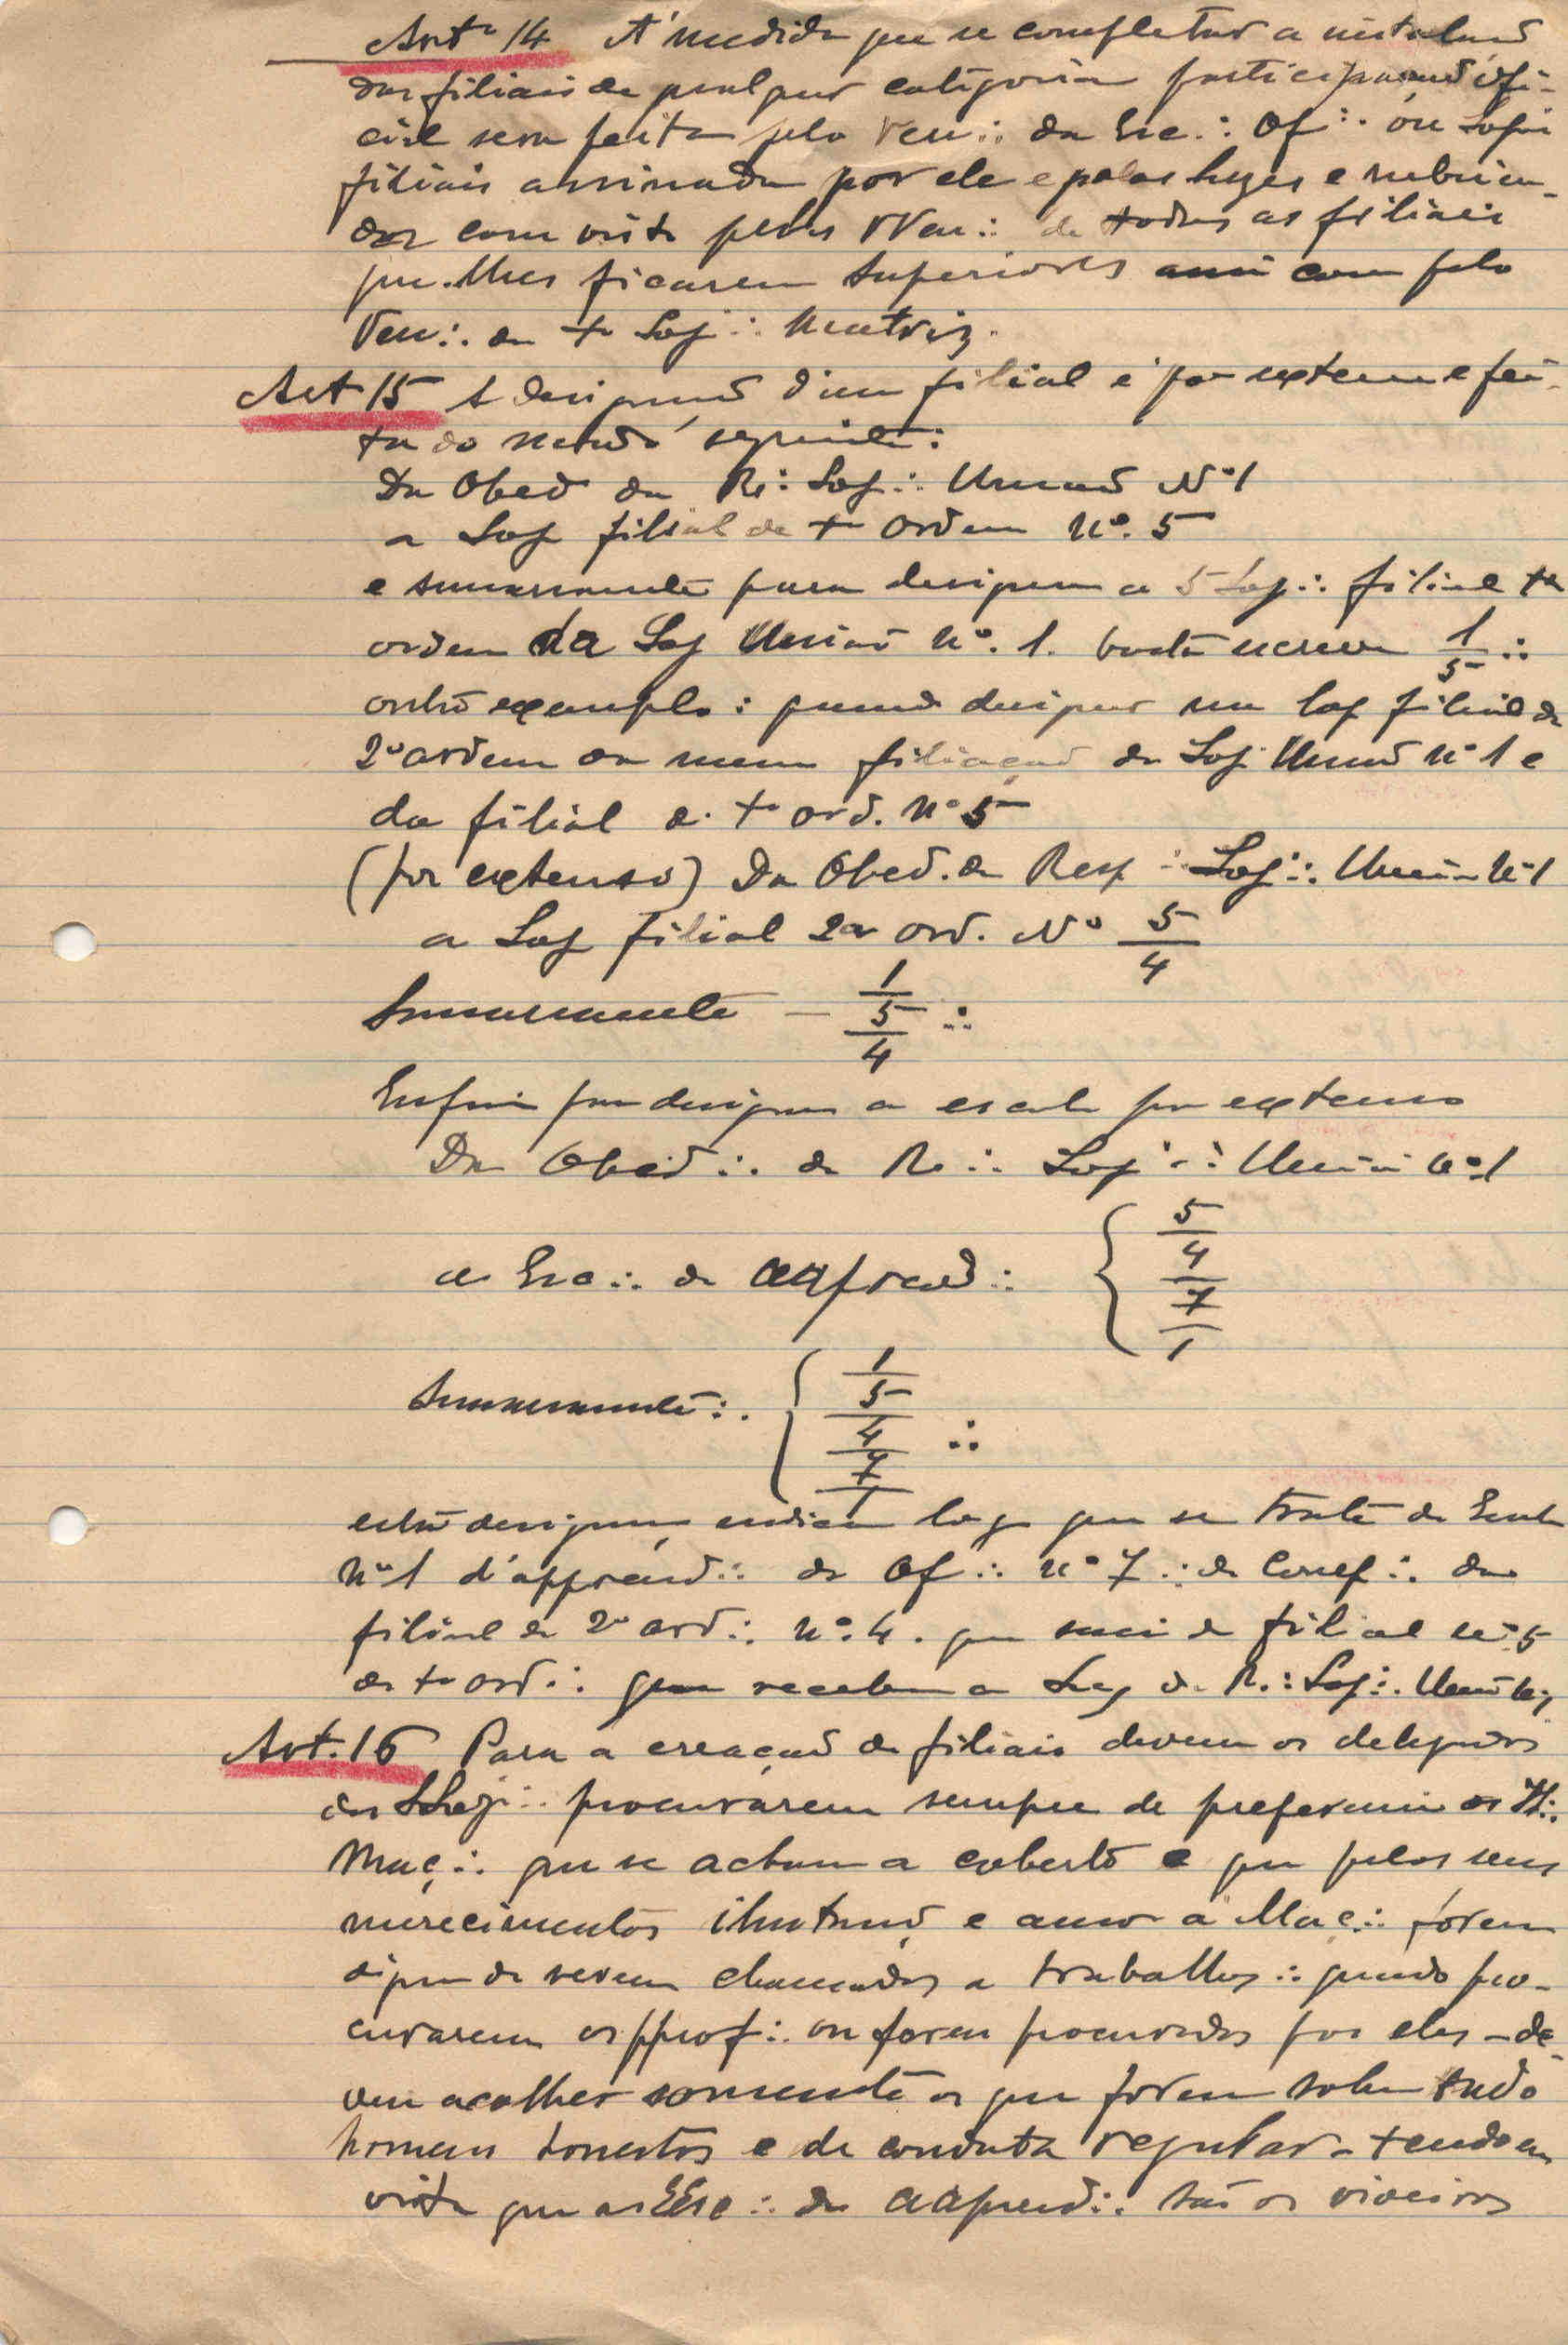 Artº 14 A' medida que se completar a instalação
das filiais de qualquer categoria participação ofi-
cial sera feita pelo Ven∴ da Esc∴ Of∴ ou Loja
filiais assinada por ele e pelas luzes e rubrica-
das com visto pelos VVen∴ de todas as filiais
que lhes ficarem superiores assim com pelo
Ven∴ da Loj∴ Matriz.
Art 15 A designação d'uma filial é por extenso e fei-
ta do modo seguinte:
Da Obed da R∴ Loj∴ União Nº 1
a Loj filial de 1ª Ordem Nº. 5
e sumariamente para designar a 5 Loj∴ filial 1ª
ordem da Loj União nº. 1. basta escrever 1/5 ∴
outro exemplo: quando designar uma Loj filial de
2ª ordem da mesma filiação da Loj União nº 1 e
da filial de 1ª ord. nº 5
(por extenso) Da Obed. da Resp∴ Loj∴ União nº 1
a Loj filial 2ª ord. Nº 5/4
Sumariamente — 1/5/4 ∴
Enfim para designar a escola por extenso
Da Obed∴ da R∴ Loj∴ União nº 1
a Esc∴ de aaprend∴ { 5/4/7/1
Sumariamente∴ { 1/5/4/7/1 ∴
esta designação indica logo que se trata da Escola
nº 1 d'apprend∴ da Of∴ nº 7 ∴ de Comp∴ da
filial de 2ª ord∴ nº. 4. que saiu da filial nº 5
de 1ª ord∴ que recebeu a Luz da R∴ Loj∴ União nº 1
Art. 16 Para a creação de filiais devem os delegados
das LLoj∴ procurarem sempre de preferencia os II∴
Maç∴ que se acham a coberto e que pelos seus
merecimentos ilustração e amor á Maç∴ forem
dignos de serem chamados a trabalhos∴ quando pro-
curarem os pprof∴ ou forem procurados por eles - de-
vem acolher somente os que forem sobre tudo
homens honestos e de conduta regular - tendo em
vista que as EEsc∴ de aaprend∴ são os viveiros